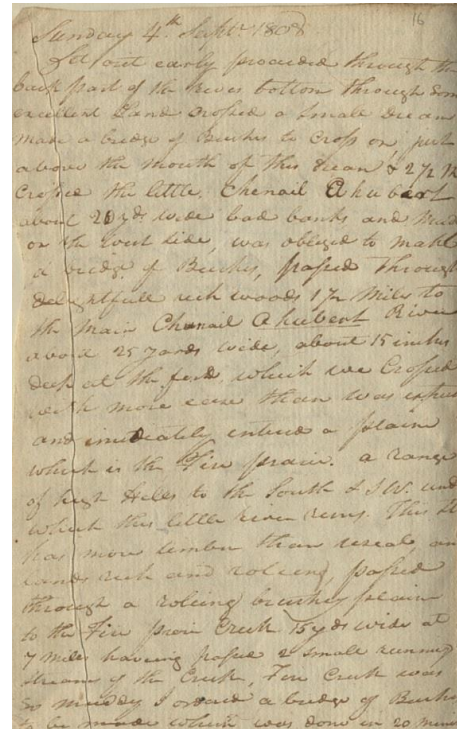 16
Sunday 4th Septr 1808
Set out early proceeded through the
back part of the river bottom through Som
excellent Land Crossed a Small Drean
made a bridge of Bushes to Cross on, just
above the mouth of this Drean & 2 1/2 M
Crossed the little Chenail Ahubert
about 20 yds wide bad banks and Mud
on the west Side, was obliged to make
a bridge of Bushes, passed through
delightfull rich woods 1 1/2 Miles to
the main Chenail Ahubert River
about 25 yards wide, about 15 inches
deep at the ford which we Crossed
with more ease than was
and imediately entered a plain
which is the Fire prarie. a range
of high Hills to the South & S.W. und
which this little river runs. This
has more timber than useal,
lands rich and roleing, passed
through a roleing brushey plain
to the Fire prarie Creek 15 yds wide at
7 Miles haveing passed 2 Small running
Streams of the Creek, Fire Creek was
So muddey I ordered a bridge of Bushes
to be made which was done in 20 minits